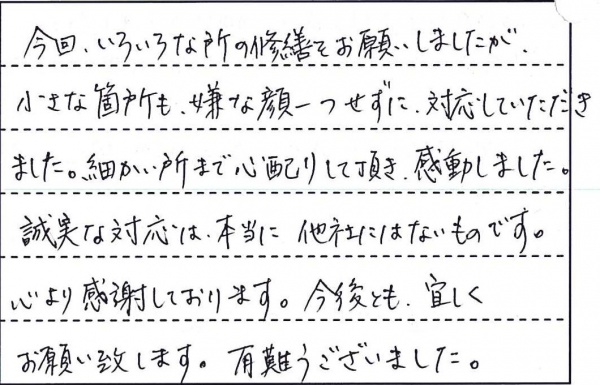 今回、いろいろな所の修繕をお願いしましたが、
小さな箇所も、嫌な顔一つせずに、対応していただき
ました。細かい所まで心配りして頂き、感動しました。
誠実な対応は、本当に他社にはないものです。
心より感謝しております。今後とも、宜しく
お願い致します。有難うございました。